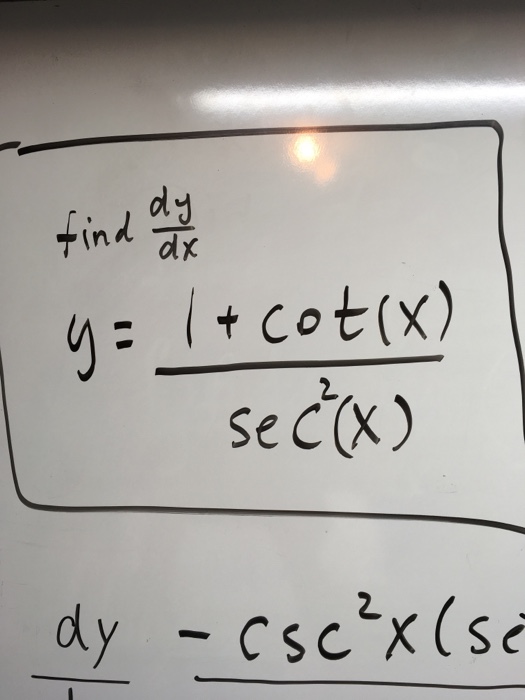 find dy/dx
y = (1 + cot(x))/(sec²(x))
dy - csc²x(se